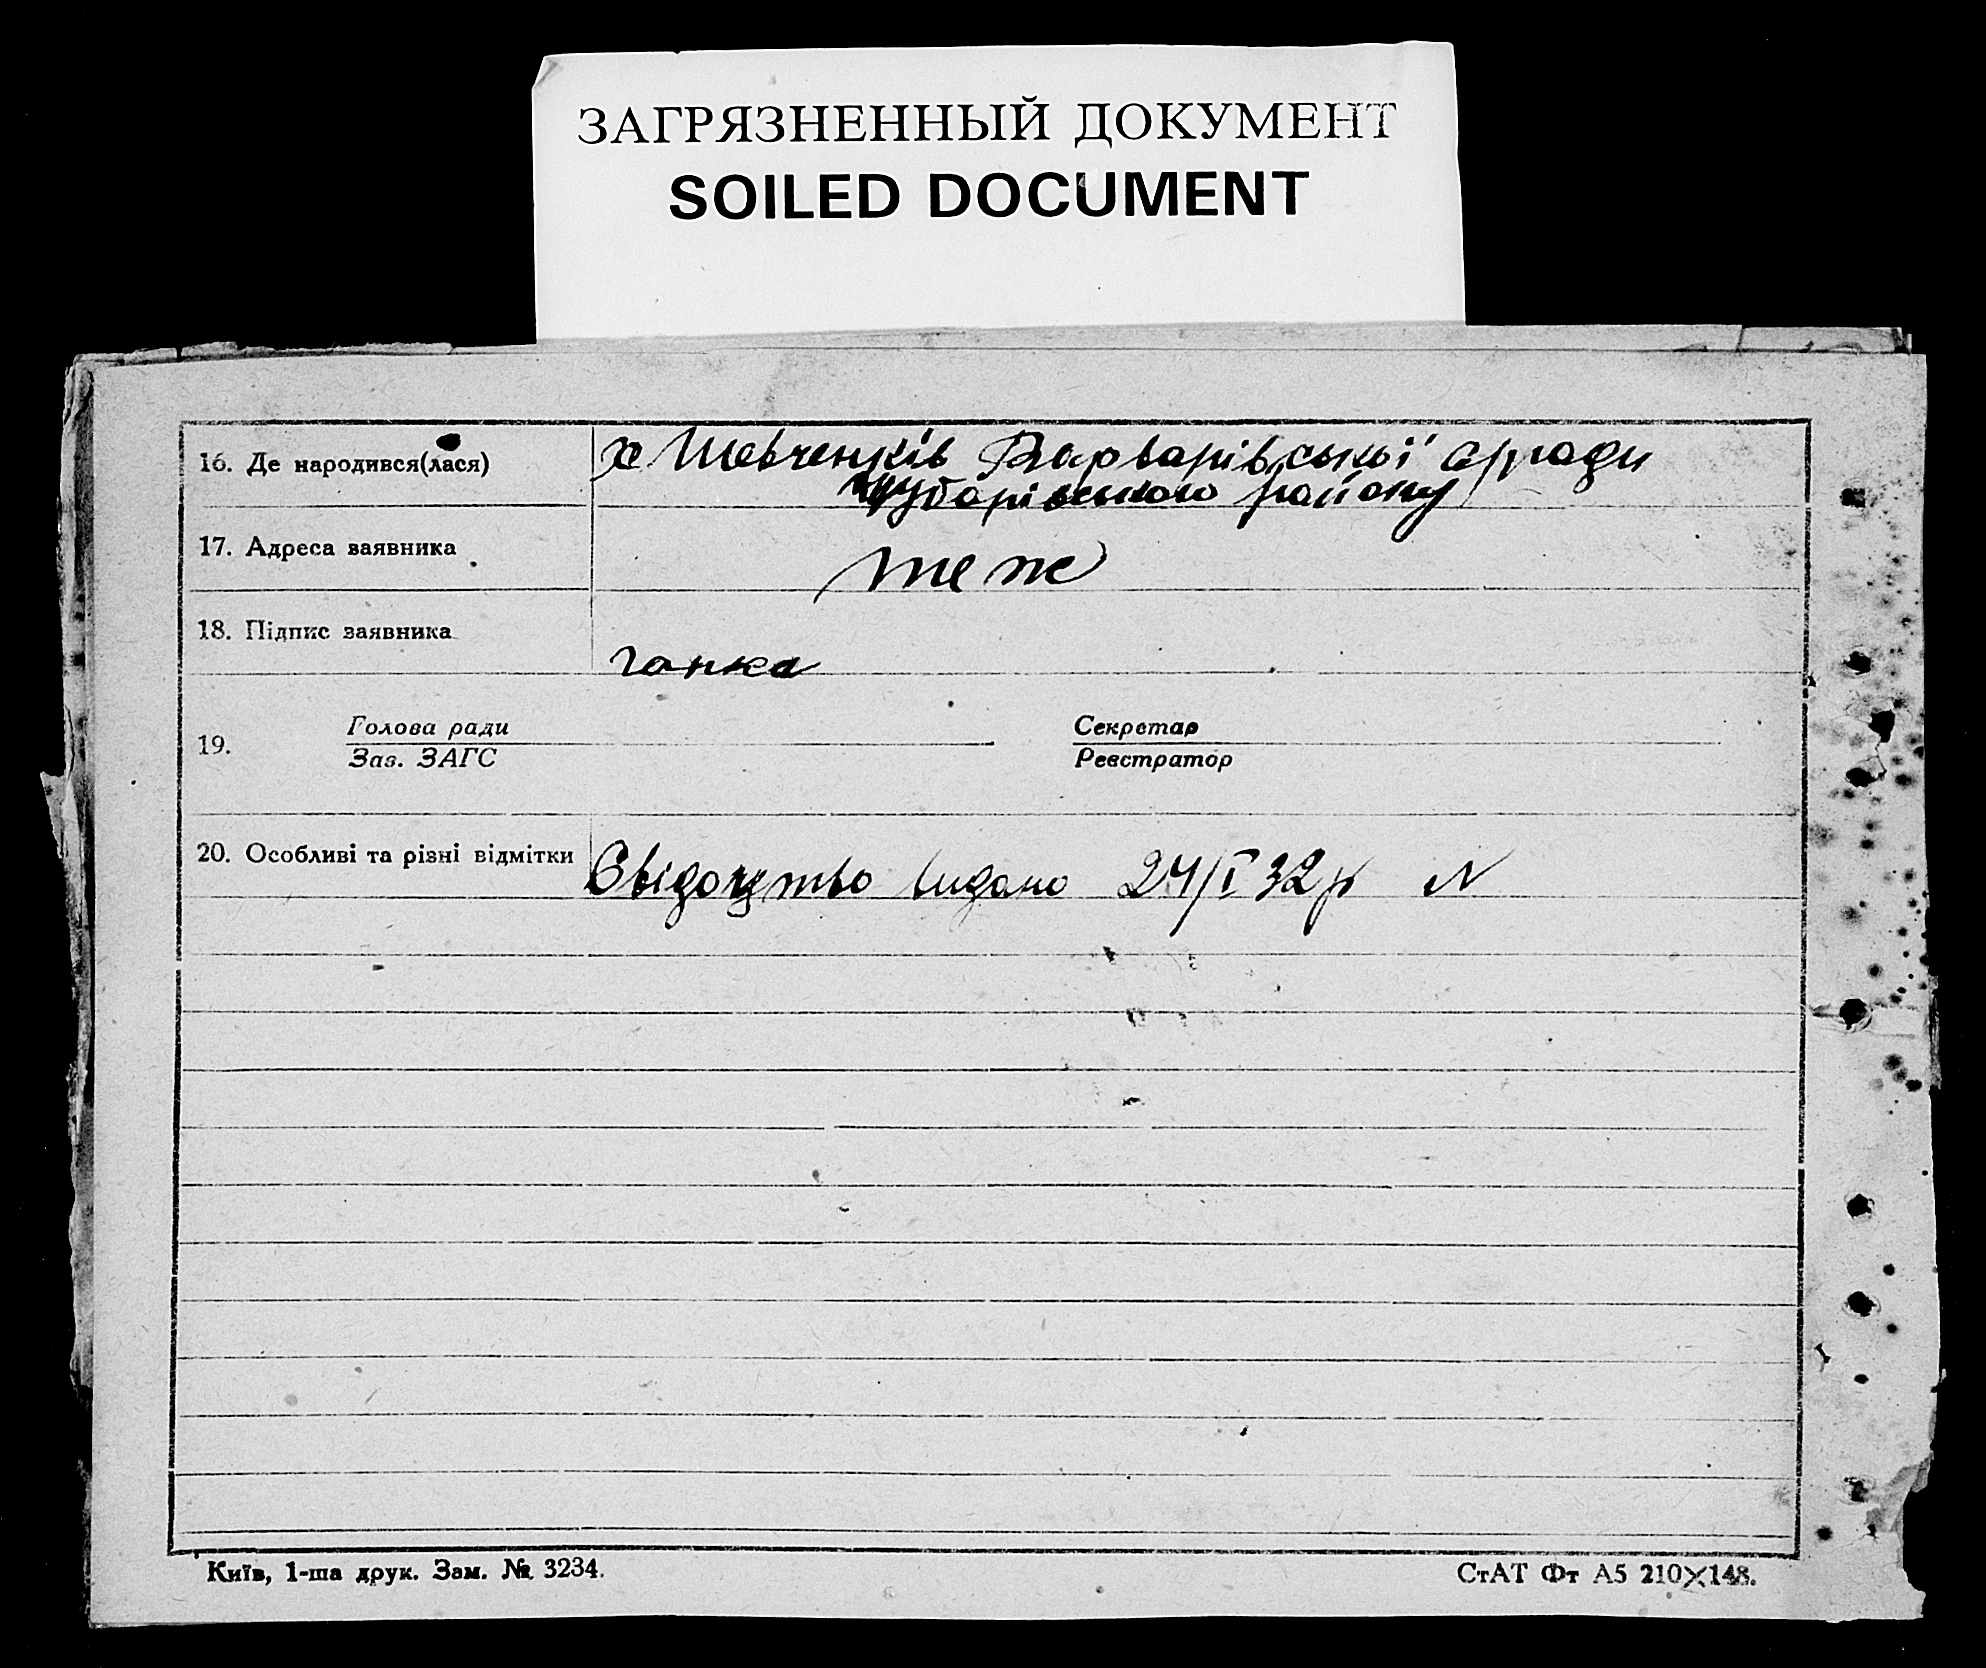 ЗАГРЯЗНЕННЫЙ ДОКУМЕНТ
SOILED DOCUMENT
16. Де народився(лася) х Шевченків Варварівської с/ради
чубарівського району
17. Адреса заявника теж
18. Підпис заявника
19. Голова ради Секретар
Зав. ЗАГС Реєстратор
20. Особливі та різні відмітки Свідоцтво видано 24/I 32 р N
Київ, 1-ша друк. Зам. № 3234.
СтАТ Фт А5 210×148.